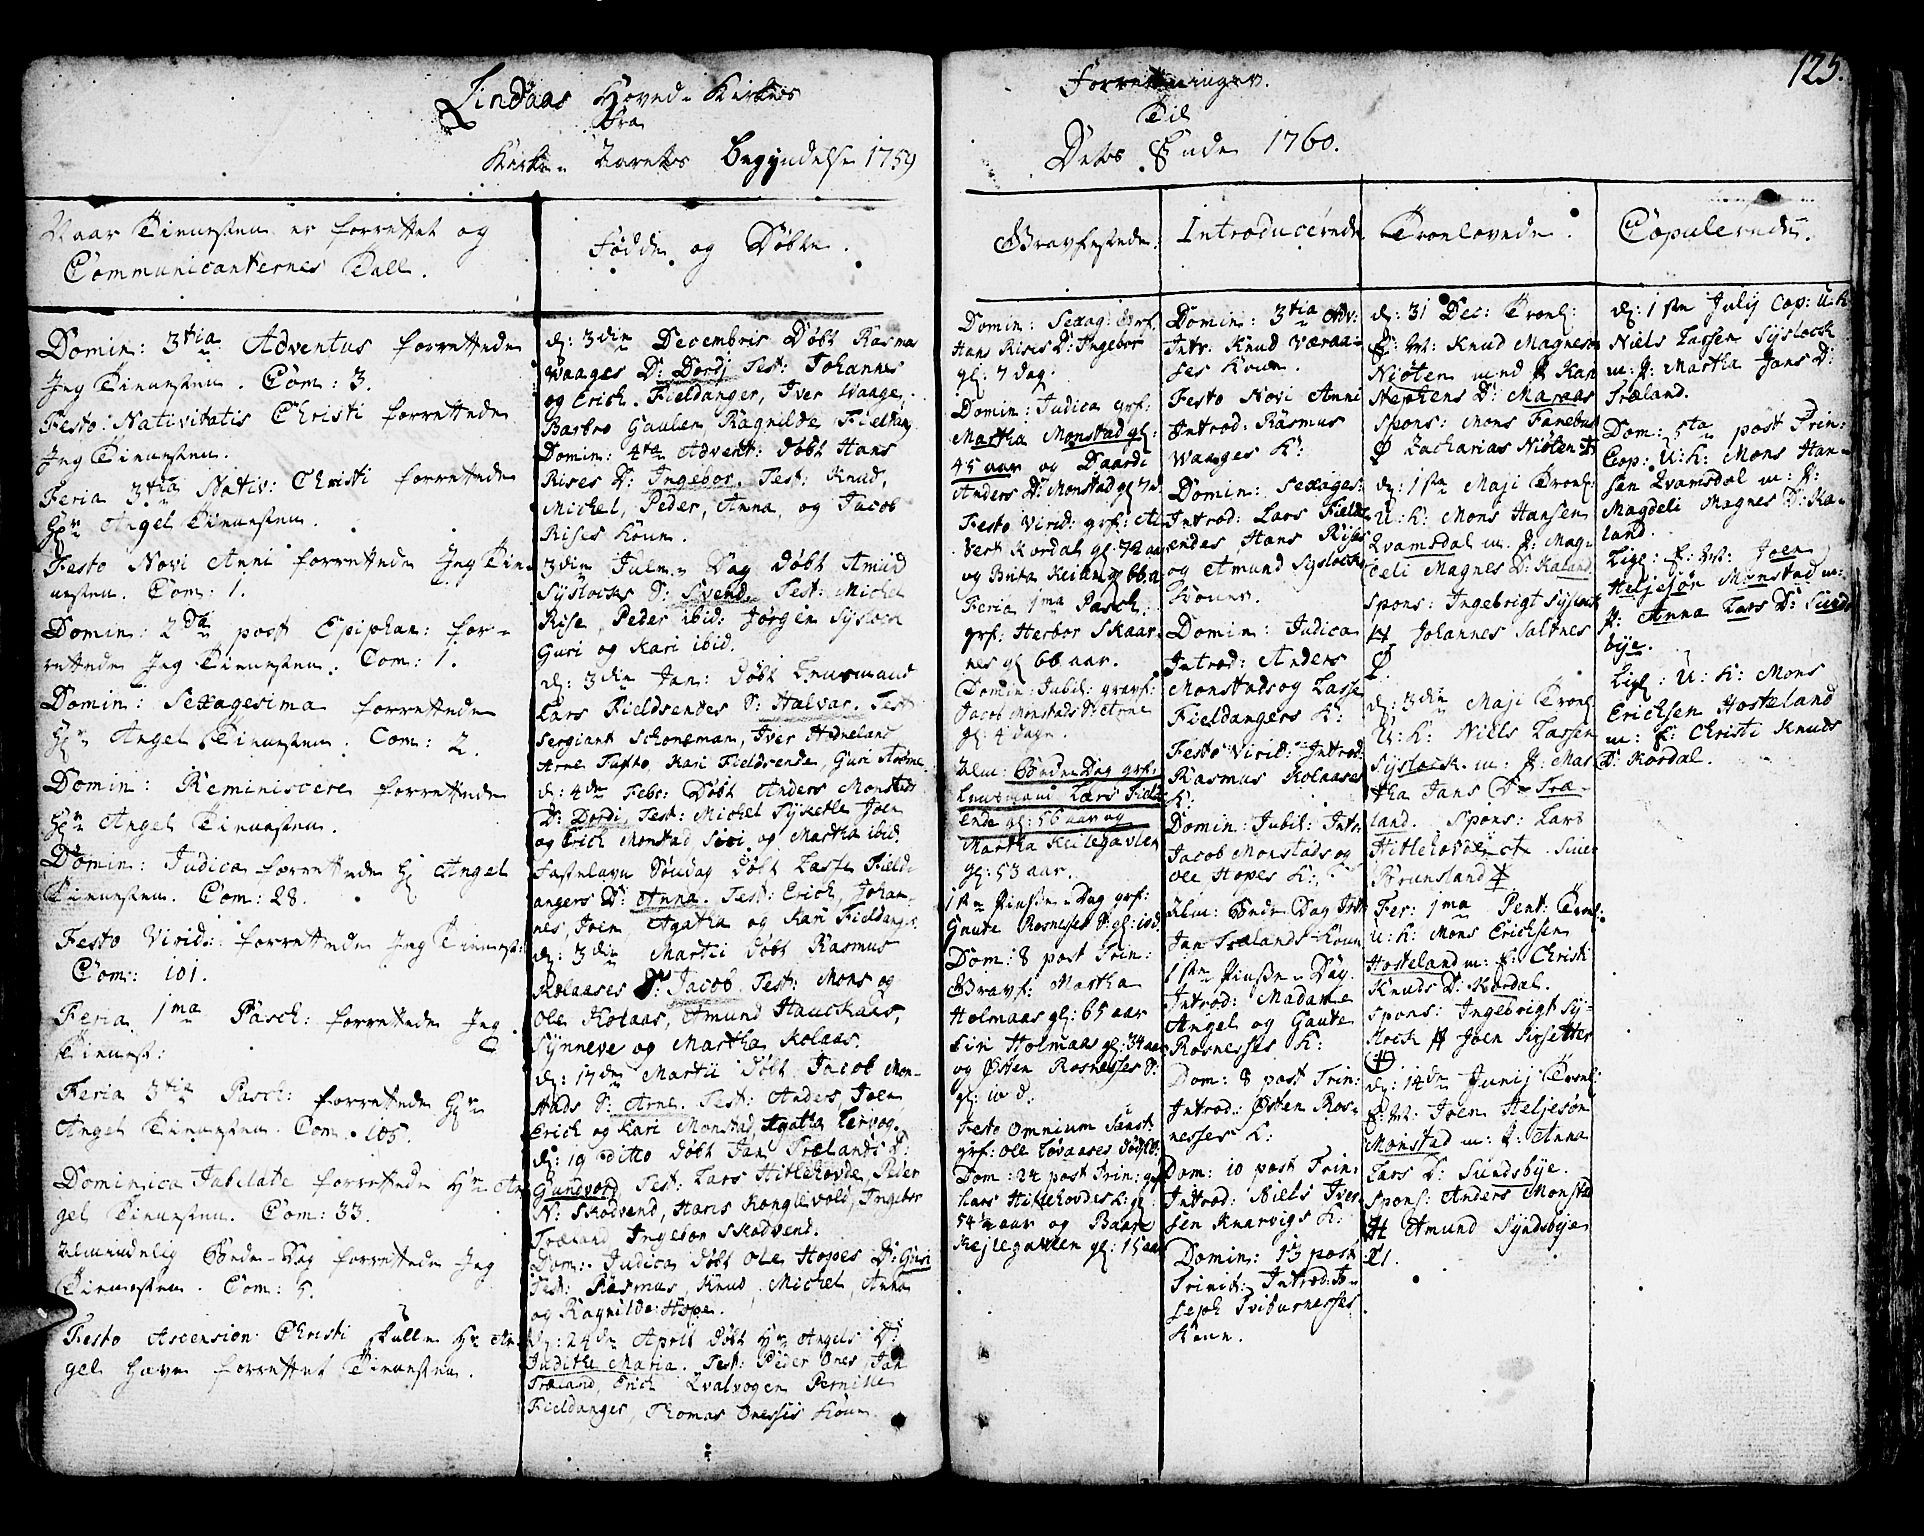 Lindaas Hoved-Kirkes
Fra
Kirke-Aarets Begyndelse 1759
Naar Tienesten er forrettet og
Communicanternes Tall.
Domin: 3tia Adventus forrettede
Jeg Tienesten. Com: 3.
Festo Nativitatis Christi forrettede
Jeg Tienesten.
Feria 3tia Nativ: Christi forrettede
Hr Angel Tienesten.
Festo Novi Anni forrettede Jeg Tien-
nesten. Com: 1.
Domin: 2da post Epiphan: for-
rettede Jeg Tienesten. Com: 1.
Domin: Sexagesima forrettede
Hr Angel Tienesten. Com: 2.
Domin: Reminiscere forrettede
Hr Angel Tienesten.
Domin: Judica forrettede Hr Angel
Tienesten. Com: 28.
Festo Virid: forrettede Jeg Tienest:
Com: 101.
Feria 1ma Pasch: forrettede Jeg
Tienest:
Feria 3tia Pasch: forrettede Hr
Angel Tienesten. Com. 105.
Dominica Jubilate forrettede Hr An-
gel Tienesten. Com: 33.
Almindelig Bede-Dag forrettede Jeg
Tienesten. Com: 5.
Festo Ascension: Christi skulle Hr An-
gel have forrettet Tienesten.
Fødde og Døbte.
d: 3die Decembris Døbt Rasmus
Waages D: Dordj Test: Johannes
og Erich Fieldanger, Iver Waage,
Barbro Gaulen Ragnilde Fieldang
Domin: 4ta Advent: Døbt Hans
Rises D: Ingebor. Test: Knud,
Michel, Peder, Anna, og Jacob
Rises Kone.
3die Jule-Dag Døbt Amund
Syslocks S: Svend. Test: Michel
Rise, Peder ibid: Jørgen Syslock
Guri og Kari ibid.
d: 3die Jan: Døbt Lensmand
Lars Fieldsendes S: Halvar. Test
Sergiant Schoneman, Iver Hodneland
Arne Tufto, Kari Fieldsende, Guri
d: 4de Febr: Døbt Anders Monstads
D: Dordi Test: Michel Joen
og Erich Monstad Sivi og Martha ibid.
Fastelavn Søndag Døbt Lasse Field-
angers D: Anna. Test: Erich, Johan-
nes, Joen Agatha og Kari Fieldanger
d: 3die Martii Døbt Rasmus
Kolaases S: Jacob Test: Mons og
Ole Kolaas, Amund Hauckaas,
Synneve og Martha Kolaas.
d: 17de Martii Døbt Jacob Mon-
stads S: Arne. Test: Anders, Joen,
Erich og Kari Monstad Agatha
d: 19 ditto Døbt Jan Trælands D:
Gundvord Test: Lars Hitlehovde, Peder
N: Skodvend, Hans Kongsevold, Ingebor
Træland Ingebor Skodvend.
Dom: Judica Døbt Ole Hopes D: Guri
Test: Rasmus, Knud, Michel, Anna
og Ragnilde Hope.
d: 24de April Døbt Hr Angels D:
Judithe Maria. Test: Peder Ones, Jan
Træland, Erich Qvalvogen Pernille
Fieldanger, Thomas Onesses Kone.
Forretninger.
Til
Dets Ende 1760.
125.
Gravfestede.
Domin: Sexag: Grf:
Hans Rises D: Ingebor
gl: 7 dag.
Domin: Judica grf:
Martha Monstad gl:
45 aar og Daardi
Anders D: Monstad gl 7 d
Festo Virid: grf: Al
vert Kordal gl 72 aar
og Brita Keilen gl 66 a
Feria 1ma Pasch:
grf: Herbor Skaar-
nes gl 66 aar.
Domin: Jubil: gravf:
Jacob Monstads S: Arne
gl: 4 dage.
Alm: Bede-Dag grf:
Lensmand Lars Fields-
ende gl: 56 aar og
Martha Keilegavlen
gl: 53 aar.
1ste Pinse-Dag grf:
Gaute Rosnesses S: gl: 10 d.
Dom: 8 post Trin:
Gravf: Martha
Holmaas gl: 65 aar
Siri Holmaas gl: 34 aar
og Østen Rosnesses S:
gl: 10 d.
Festo Omnium Sanct
grf: Ole Tovaases
Dom: 22 post Trin: grf
Lars Hitlehovdes K: gl:
54 aar og Baar
Kejlegavlen gl: 15 aar
Introducerede
Domin: 3tia Adv:
Intr: Knud Væraa-
ses Kone.
Festo Novi Anni
Introd: Rasmus
Waages K:
Domin: Sexages:
Introd: Lars Fields-
endes, Hans Rises
og Amund Syslocks
Koner.
Domin: Judica
Introd: Anders
Monstads og Lasse
Fieldangers K:
Festo Virid: Introd:
Rasmus Kolaases
K:
Domin: Jubil: Intr:
Jacob Monstads og
Ole Hopes K:
Alm: Bede Dag Intr
Jan Trælands Kone
1ste Pinse-Dag
Introd: Madame
Angel og Gaute
Rosnesses K:
Dom: 8 post Trin:
Introd: Østen Ros-
nesses K:
Dom: 10 post Trin:
Introd: Niels Iver-
sen Knarvigs K:
Domin: 13 post
Trinit: Introd: Jo-
seph Tviburnesses
Kone.
Trolovede.
d: 31 Dec: Trol:
E: M: Knud Magnesen
Nioten med P: Kari
Stephens D: Maraas
Spons: Mons Fanebus
Zacharias Nioten
d: 1ste Maji Trol:
U: K: Mons Hansen
Qvamsdal m: P: Mag-
deli Magnes D: Kaland
Spons: Ingebrigt Syslock
Johannes Saltnes
d: 3die Maji Trol
U: K: Niels Lassen
Syslock m: P: Mar-
tha Jans D: Træ-
land. Spons: Lars
Hitlehovde Siur
Brunsland
Fer: 1ma Pent: Trol:
U: K: Mons Erichsen
Hosteland m: P: Christi
Knuds D: Kordal.
Spons: Ingebrigt Sy-
slock Joen
d: 14de Junij Trol:
E: M: Joen Heljesøn
Monstad m: P: Anna
Lars D: Sundsbye.
Spons: Anders Monsta
Amund Syndsbye
Copulerede.
d: 1ste Julij Cop: U: K:
Niels Lassen Syslock
m: P: Martha Jans D:
Træland.
Dom: 5ta post Trin:
Cop: U: K: Mons Han-
sen Qvamsdal m: P:
Magdeli Magnes D: Ka-
land.
Ligl: E: M: Joen
Heljesøn Monstad m:
P: Anna Lars D: Sunds
bye.
Ligl: U: K: Mons
Erichsen Hosteland
m: P: Christi Knuds
D: Kordal.